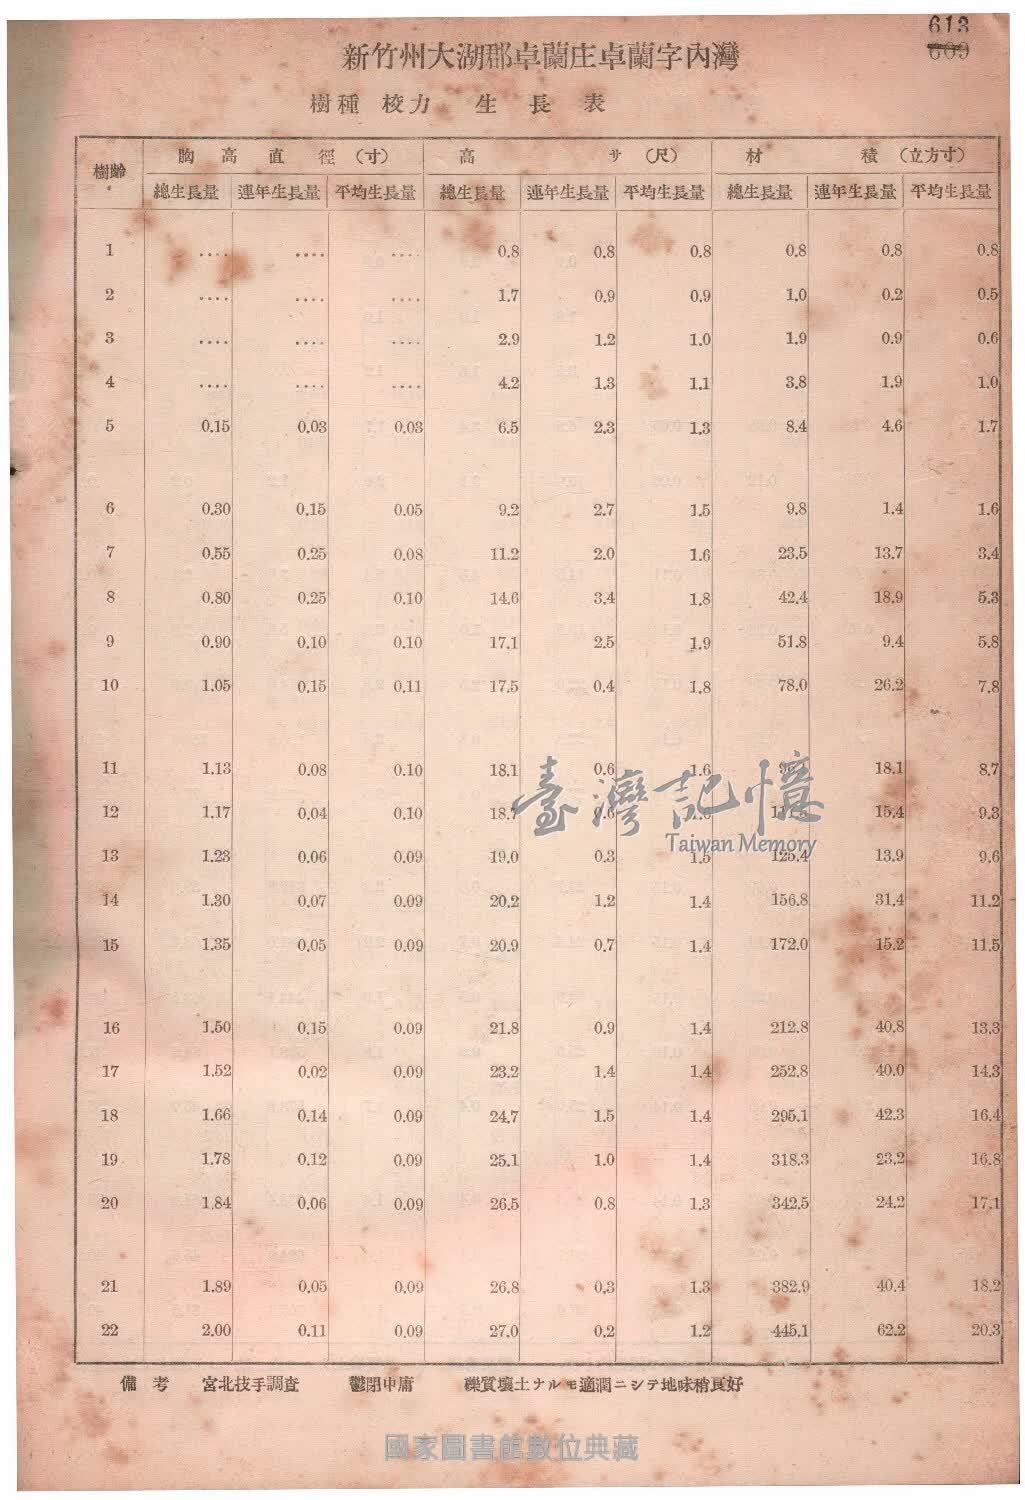 613
609
新竹州大湖郡卓蘭庄卓蘭字內灣
樹種 校力 生長表
樹齡 胸高直徑(寸) 高サ(尺) 材積(立方寸)
總生長量 連年生長量 平均生長量 總生長量 連年生長量 平均生長量 總生長量 連年生長量 平均生長量
1 .... .... .... 0.8 0.8 0.8 0.8 0.8 0.8
2 .... .... .... 1.7 0.9 0.9 1.0 0.2 0.5
3 .... .... .... 2.9 1.2 1.0 1.9 0.9 0.6
4 .... .... .... 4.2 1.3 1.1 3.8 1.9 1.0
5 0.15 0.03 0.03 6.5 2.3 1.3 8.4 4.6 1.7
6 0.30 0.15 0.05 9.2 2.7 1.5 9.8 1.4 1.6
7 0.55 0.25 0.08 11.2 2.0 1.6 23.5 13.7 3.4
8 0.80 0.25 0.10 14.6 3.4 1.8 42.4 18.9 5.3
9 0.90 0.10 0.10 17.1 2.5 1.9 51.8 9.4 5.8
10 1.05 0.15 0.11 17.5 0.4 1.8 78.0 26.2 7.8
11 1.13 0.08 0.10 18.1 0.6 1.6 18.1 8.7
12 1.17 0.04 0.10 18.7 0.6 15.4 9.3
臺灣記憶
Taiwan Memory
13 1.23 0.06 0.09 19.0 0.3 1.5 125.4 13.9 9.6
14 1.30 0.07 0.09 20.2 1.2 1.4 156.8 31.4 11.2
15 1.35 0.05 0.09 20.9 0.7 1.4 172.0 15.2 11.5
16 1.50 0.15 0.09 21.8 0.9 1.4 212.8 40.8 13.3
17 1.52 0.02 0.09 23.2 1.4 1.4 252.8 40.0 14.3
18 1.66 0.14 0.09 24.7 1.5 1.4 295.1 42.3 16.4
19 1.78 0.12 0.09 25.1 1.0 1.4 318.3 23.2 16.8
20 1.84 0.06 0.09 26.5 0.8 1.3 342.5 24.2 17.1
21 1.89 0.05 0.09 26.8 0.3 1.3 382.9 40.4 18.2
22 2.00 0.11 0.09 27.0 0.2 1.2 445.1 62.2 20.3
備考 宮北技手調査 鬱閉中庸 礫質壤土ナルモ適潤ニシテ地味稍良好
國家圖書館數位典藏